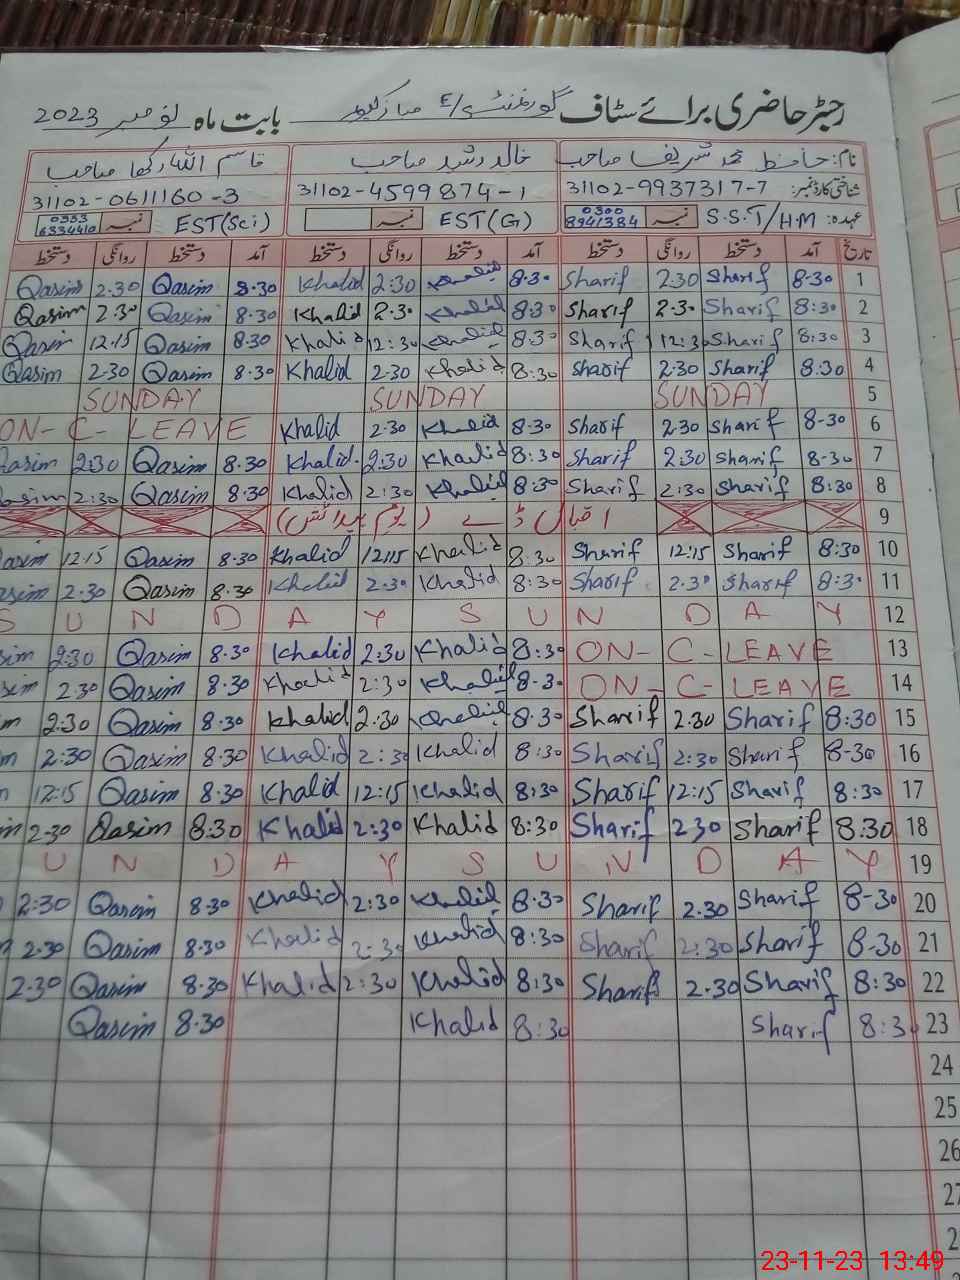 رجسٹر حاضری برائے سٹاف گورنمنٹ E/S بابت ماہ نومبر 2023
نام: حافظ محمد شریف صاحب خالد رشید صاحب قاسم اللہ رکھا صاحب
شناختی کارڈ نمبر: 31102-9937317-7 31102-4599874-1 31102-0611160-3
عہدہ: S.S.T/H.M نمبر 0300 8941384 EST(G) نمبر EST(Sci) نمبر 0333 6334410
تاریخ آمد دستخط روانگی دستخط آمد دستخط روانگی دستخط آمد دستخط روانگی دستخط
1 8-30 Sharif 2.30 Sharif 8.30 Khalid 2:30 Khalid 8.30 Qasim 2.30 Qasim
2 8:30 Sharif 2.30 Sharif 8:30 Khalid 2.30 Khalid 8.30 Qasim 2.30 Qasim
3 8:30 Sharif 12:30 Sharif 8:30 Khalid 12:30 Khalid 8.30 Qasim 12.15 Qasim
4 8:30 Sharif 2:30 Sharif 8:30 Khalid 2.30 Khalid 8.30 Qasim 2.30 Qasim
5 SUNDAY SUNDAY SUNDAY
6 8-30 Sharif 2.30 Sharif 8-30 Khalid 2.30 Khalid ON-C-LEAVE
7 8-30 Sharif 2.30 Sharif 8:30 Khalid 2:30 Khalid 8.30 Qasim 2:30 Qasim
8 8:30 Sharif 2:30 Sharif 8:30 Khalid 2:30 Khalid 8.30 Qasim 2:30 Qasim
9 اقبال ڈے (یوم پیدائش)
10 8:30 Sharif 12:15 Sharif 8:30 Khalid 12:15 Khalid 8.30 Qasim 12:15 asim
11 8:30 Sharif 2.30 Sharif 8:30 Khalid 2.30 Khalid 8.30 Qasim 2.30 asim
12 SUNDAY SUNDAY
13 ON-C-LEAVE 8:30 Khalid 2:30 Khalid 8.30 Qasim 2:30 sim
14 ON-C-LEAVE 8-30 Khalid 2:30 Khalid 8.30 Qasim 2.30 sim
15 8:30 Sharif 2.30 Sharif 8.30 Khalid 2.30 Khalid 8.30 Qasim 2:30 m
16 8-30 Sharif 2:30 Sharif 8:30 Khalid 2:30 Khalid 8.30 Qasim 2:30 m
17 8:30 Sharif 12:15 Sharif 8:30 Khalid 12:15 Khalid 8.30 Qasim 12:15
18 8:30 Sharif 2 30 Sharif 8:30 Khalid 2:30 Khalid 8:30 Qasim 2-30 m
19 SUNDAY UNDAY
20 8-30 Sharif 2.30 Sharif 8:30 Khalid 2:30 Khalid 8.30 Qasim 2:30
21 8-30 Sharif 2:30 Sharif 8:30 Khalid 2:30 Khalid 8.30 Qasim 2.30
22 8:30 Sharif 2.30 Sharif 8:30 Khalid 2:30 Khalid 8.30 Qasim 2.30
23 8:30 Sharif 8:30 Khalid 8.30 Qasim
24
25
26
27
23-11-23 13:49